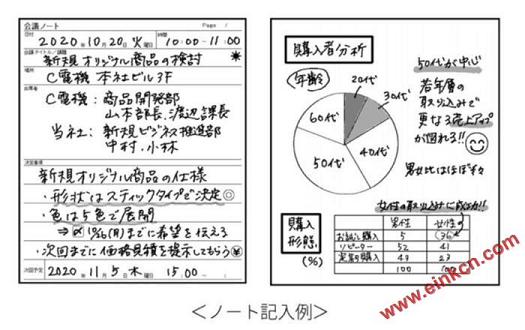 会議ノート Page /
日付 2020年10月20日 火曜日 時間 10:00-11:00
会議タイトル/議題
新規オリジナル商品の検討
場所 C電機 本社ビル3F
出席者
C電機：商品開発部
山本部長、渡辺課長
当社：新規ビジネス推進部
中村、小林
決定事項
新規オリジナル商品の仕様
・形状はスティックタイプで決定◎
・色は5色で展開
⇒〆10/26(月)までに希望を伝える
・次回までに価格見積を提示してもらう¥
次回予定 2020年11月5日 木曜日 15:00~
購入者分析
年齢
20代
30代
40代
50代
60代
50代が中心
若年層の
取り込みで
更なる売上アップ
が図れる!!
男女比はほぼ
女性の取り込みに成功!!
購入形態
(%)
男性 女性
お試し購入 5 36
リピーター 52 41
定期購入 43 23
100 100
<ノート記入例>
www.einkcn.com